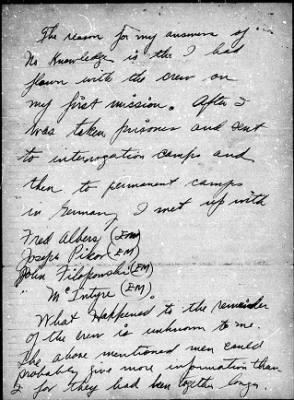 The reason for my answers of
No Knowledge is the I had
flown with the crew on
my first mission. After I
was taken prisoner and sent
to interrogation camps and
then to permanent camps
in Germany I met up with
Fred Albers (EM)
Joseph Piko (EM)
John Filopowski (EM)
" McIntyre (EM)
What Happened to the remainder
of the crew is unknown to me.
The above mentioned men could
probably give more information than
I for they had been together longer.